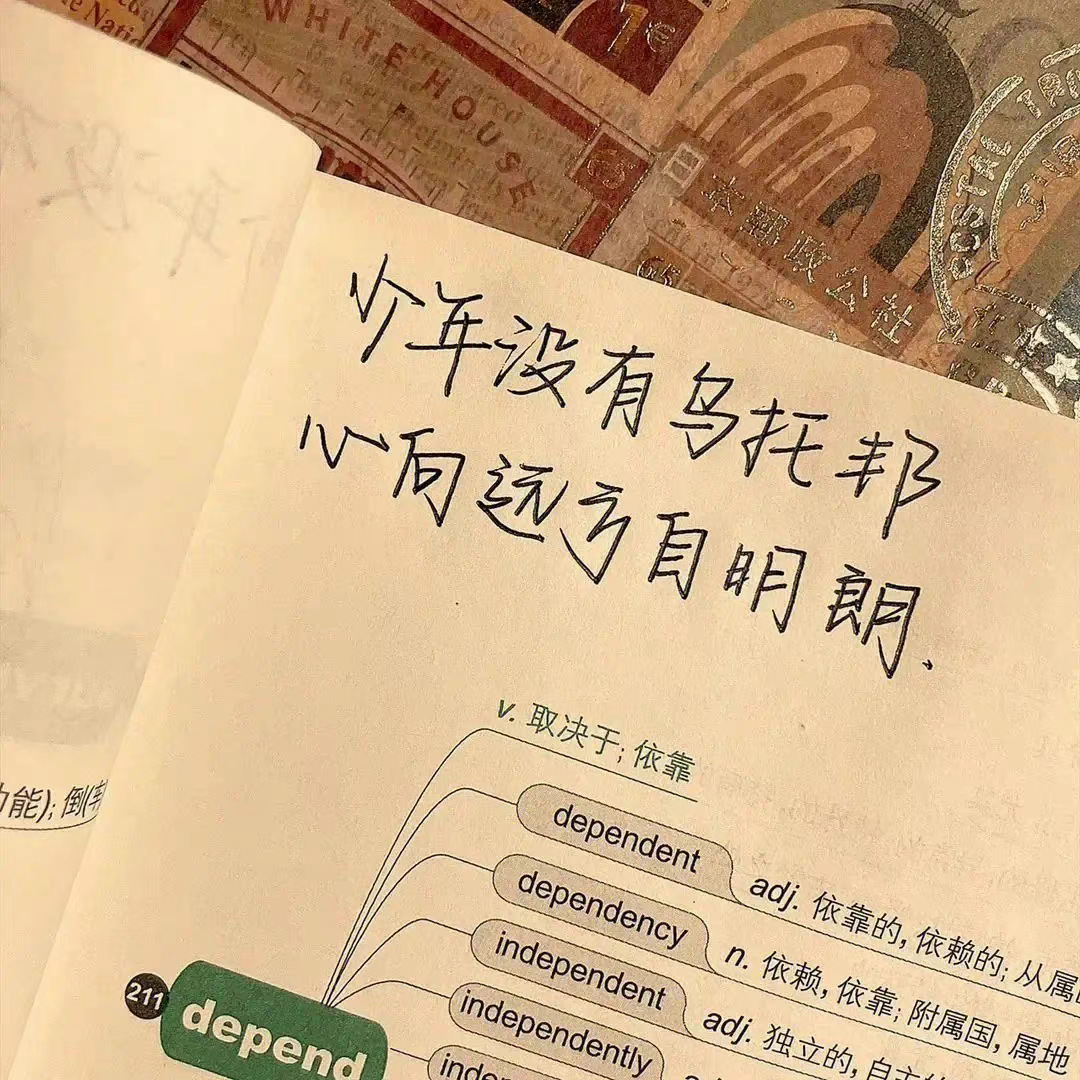 WHITE HOUSE
1€
日本郵政公社
POSTAL
少年没有乌托邦
心向远方自明朗.
v. 取决于; 依靠
dependent
adj. 依靠的, 依赖的; 从属
dependency
n. 依赖, 依靠; 附属国, 属地
independent
adj. 独立的, 自主
independently
211
depend
能); 倒